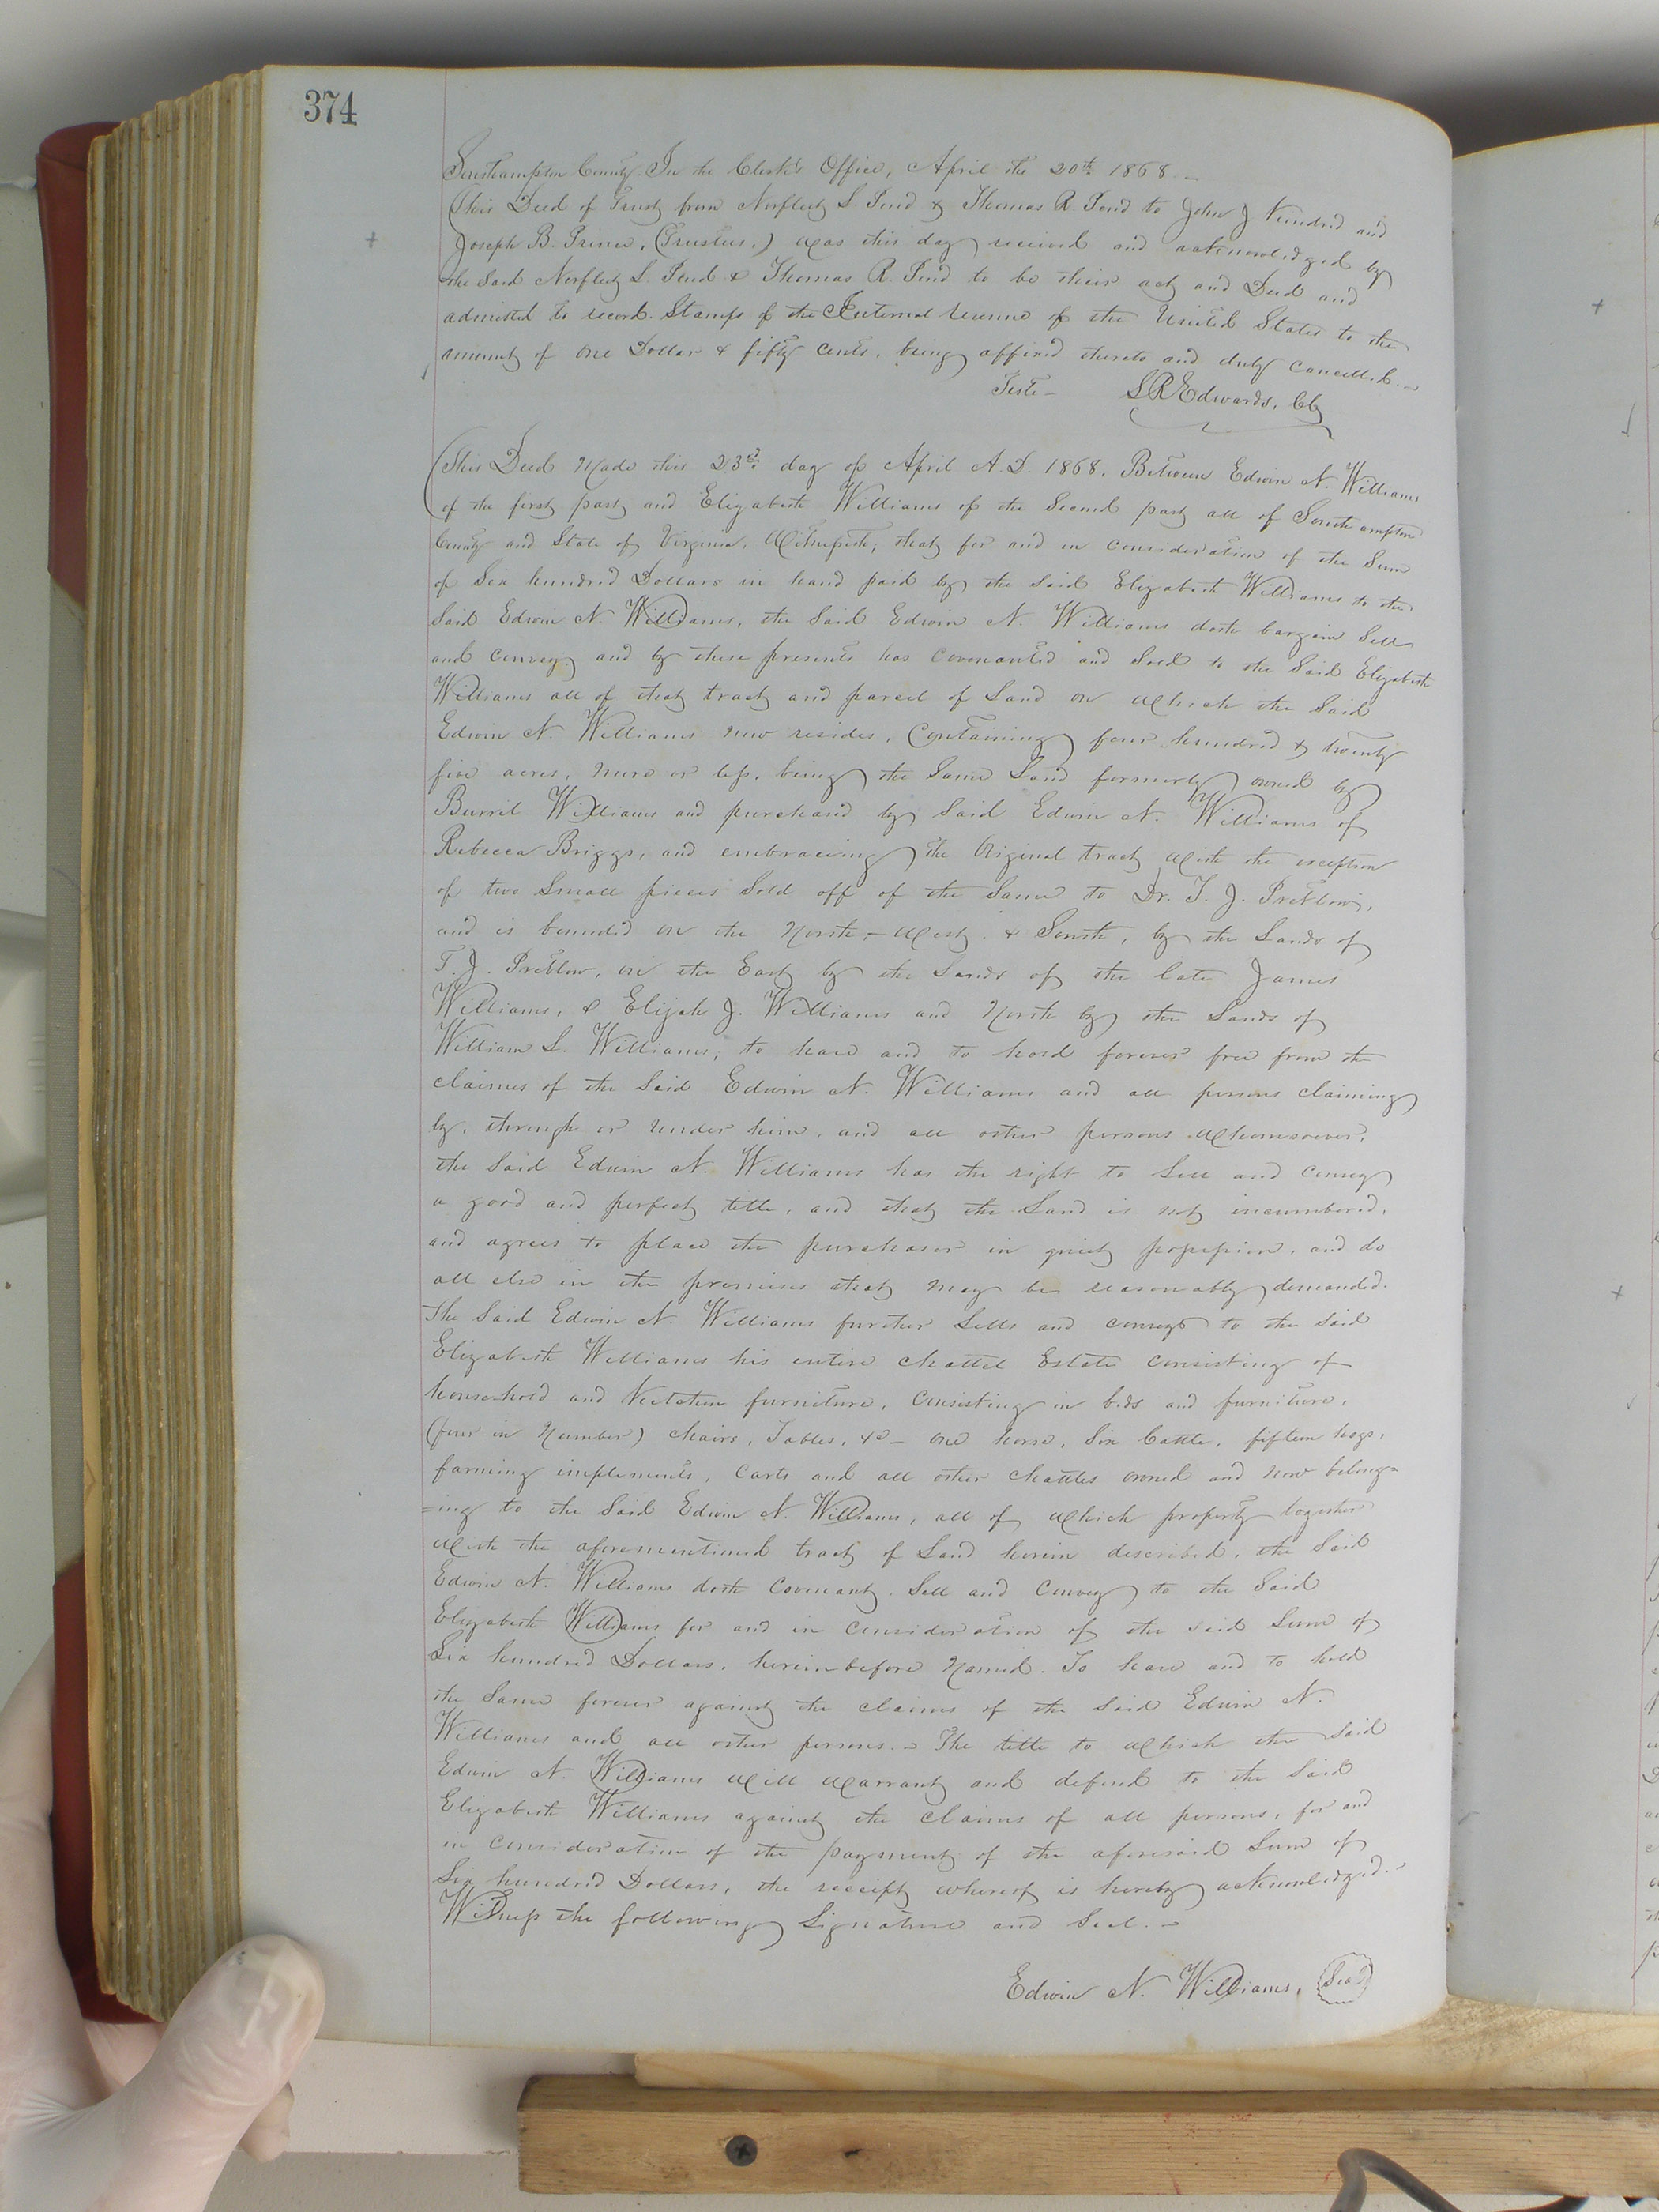 374
Southampton County. In the Clerk's Office, April the 20th 1868. –
This Deed of Trust from Norfleet S. Pond & Thomas R. Pond to John J Kindred and
Joseph B. Prince, (Trustees,) was this day received and acknowledged by
the Said Norfleet S. Pond & Thomas R. Pond to be their act and Deed and
admitted to record. Stamps of the Internal revenue of the United States to the
amount of one Dollar & fifty cents, being affixed thereto and duly cancelled. –
Teste – L R Edwards, Clk
This Deed Made this 23rd day of April A.D. 1868. Between Edwin N. Williams
of the first part and Elizabeth Williams of the Second part all of Southampton
County and State of Virginia, Witnesseth; that for and in consideration of the Sum
of Six hundred Dollars in hand paid by the Said Elizabeth Williams to the
Said Edwin N. Williams, the Said Edwin N. Williams doth bargain Sell
and convey, and by these presents has covenanted and Sold to the Said Elizabeth
Williams all of that tract and parcel of Land on which the Said
Edwin N. Williams now resides, Containing four hundred & twenty
five acres, more or less, being the Same Land formerly owned by
Burril Williams and purchased by Said Edwin N. Williams of
Rebecca Briggs, and embracing the Original tract with the exception
of two Small pieces Sold off of the Same to Dr. T. J. Pretlow,
and is bounded on the North, – West, & South, by the Lands of
T. J. Pretlow, on the East by the Lands of the late James
Williams, & Elijah J. Williams and North by the Lands of
William S. Williams, to have and to hold forever free from the
claims of the Said Edwin N. Williams and all persons claiming
by, through or under him, and all other persons whomsoever,
the Said Edwin N. Williams has the right to Sell and convey
a good and perfect title, and that the Land is not incumbered,
and agrees to place the purchaser in quiet possession, and do
all else in the premises that may be reasonably demanded.
The Said Edwin N. Williams further Sells and conveys to the Said
Elizabeth Williams his entire chattel Estate consisting of
household and Kitchen furniture, consisting in beds and furniture,
(four in Number) chairs, Tables, &c – one horse, Six Cattle, fifteen hogs,
farming implements, Carts and all other chattles owned and now belong=
=ing to the Said Edwin N. Williams, all of which property together
with the aforementioned tract of Land herein described, the Said
Edwin N. Williams doth Covenant, Sell and Convey to the Said
Elizabeth Williams for and in consideration of the said Sum of
Six hundred Dollars, hereinbefore Named. To have and to hold
the Same forever against the claims of the Said Edwin N.
Williams and all other persons. – The title to which the Said
Edwin N. Williams will warrant and defend to the Said
Elizabeth Williams against the claims of all persons, for and
in consideration of the payment of the aforesaid Sum of
Six hundred Dollars, the receipt whereof is hereby acknowledged. –
Witness the following Signature and Seal. –
Edwin N. Williams, Seal